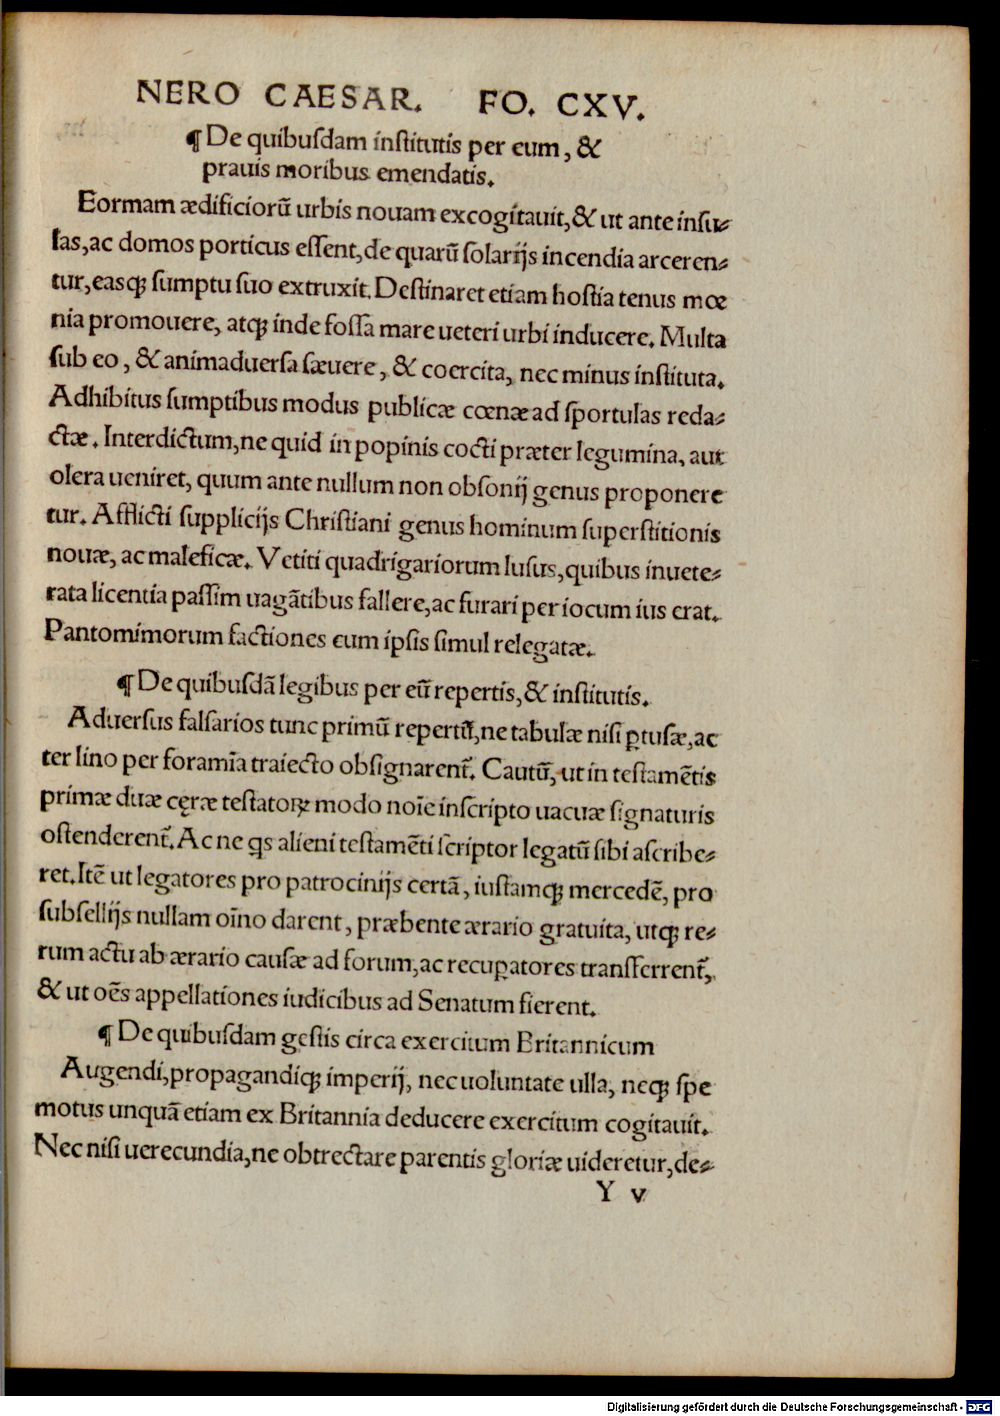 NERO CAESAR. FO. CXV.
¶ De quibuſdam inſtitutis per eum, &
prauis moribus emendatis.
Eormam ædificiorũ urbis nouam excogitauit, & ut ante inſu⸗
las, ac domos porticus eſſent, de quarũ ſolarijs incendia arceren⸗
tur, easqꝫ ſumptu ſuo extruxit. Deſtinaret etiam hoſtia tenus mœ
nia promouere, atqꝫ inde foſſa mare ueteri urbi inducere. Multa
ſub eo, & animaduerſa ſæuere, & coercita, nec minus inſtituta.
Adhibitus ſumptibus modus publicæ cœnæ ad ſportulas reda⸗
ctæ. Interdictum, ne quid in popinis cocti præter legumina, aut
olera ueniret, quum ante nullum non obſonij genus proponere
tur. Afflicti ſupplicijs Chriſtiani genus hominum ſuperſtitionis
nouæ, ac maleficæ. Vetiti quadrigariorum luſus, quibus inuete⸗
rata licentia paſſim uagãtibus fallere, ac furari per iocum ius erat.
Pantomimorum factiones cum ipſis ſimul relegatæ.
¶ De quibuſdã legibus per eũ repertis, & inſtitutis.
Aduerſus falſarios tunc primũ repertũ, ne tabulæ niſi ꝑtuſæ, ac
ter lino per foramĩa traiecto obſignarent̃. Cautũ, ut in teſtamẽtis
primæ duæ cęræ teſtatoꝝ modo noĩe inſcripto uacuæ ſignaturis
oſtenderent̃. Ac ne qs alieni teſtamẽti ſcriptor legatũ ſibi aſcribe⸗
ret. Itẽ ut legatores pro patrocinijs certã, iuſtamqꝫ mercedẽ, pro
ſubſellijs nullam oĩno darent, præbente ærario gratuita, utqꝫ re⸗
rum actu ab ærario cauſæ ad forum, ac recuꝑatores transferrent̃,
& ut oẽs appellationes iudicibus ad Senatum fierent.
¶ De quibuſdam geſtis circa exercitum Britannicum
Augendi, propagandiqꝫ imperij, nec uoluntate ulla, neqꝫ ſpe
motus unquã etiam ex Britannia deducere exercitum cogitauit.
Nec niſi uerecundia, ne obtrectare parentis gloriæ uideretur, de⸗
Y v
Digitalisierung gefördert durch die Deutsche Forschungsgemeinschaft - DFG